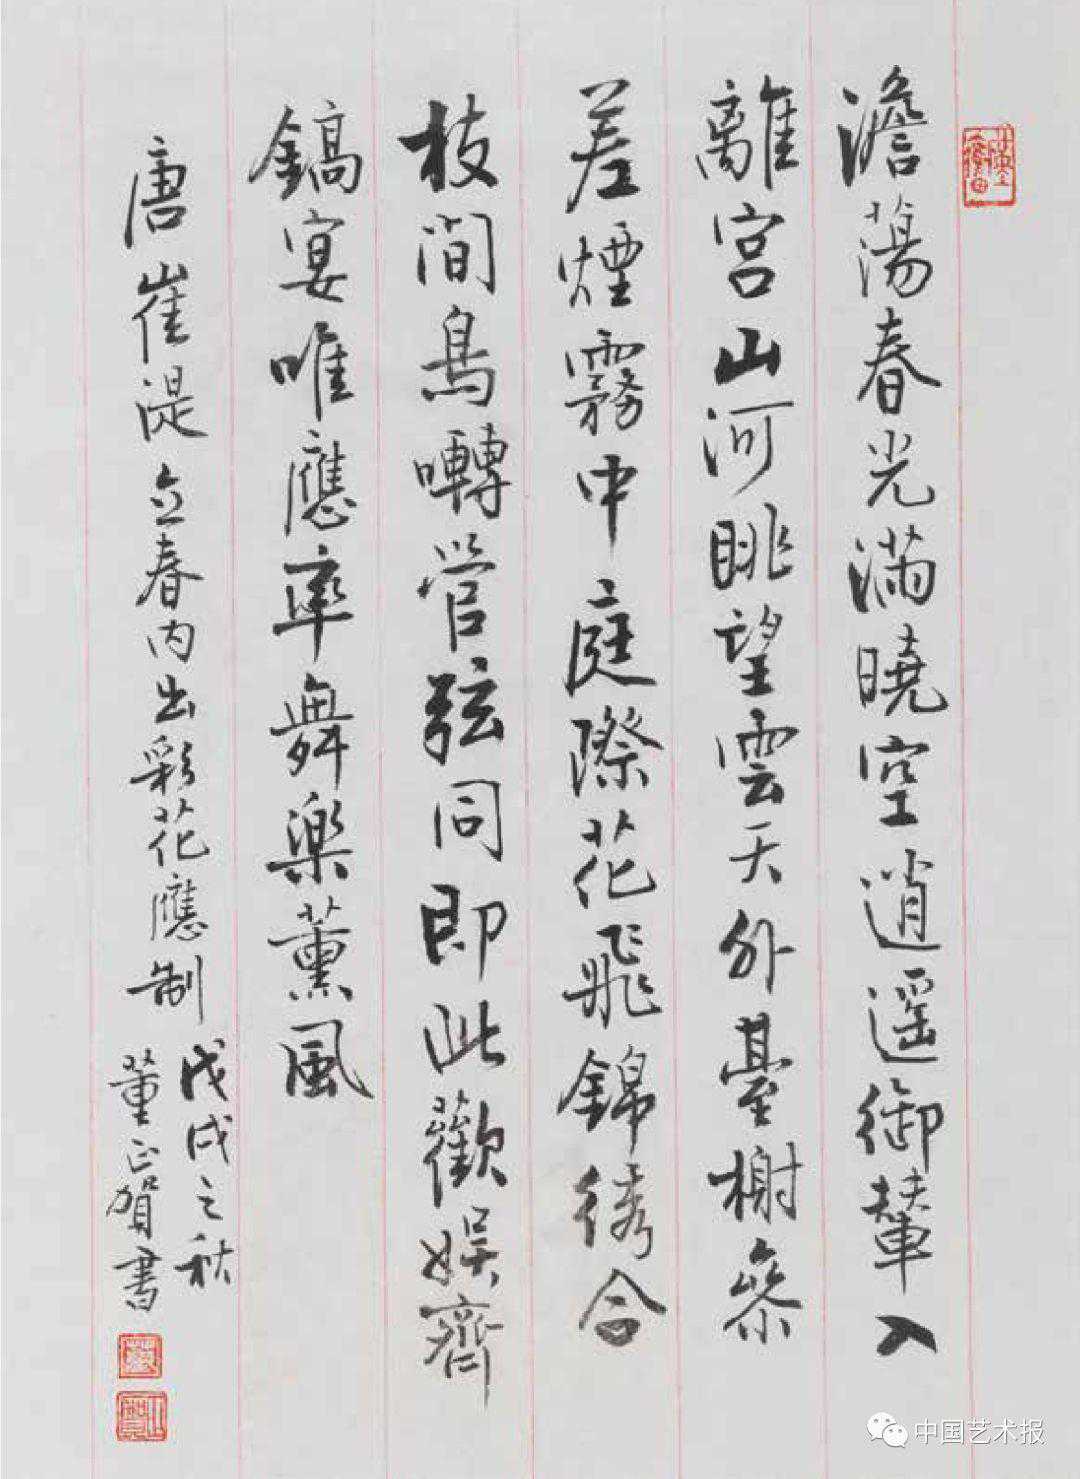 澹蕩春光滿曉空逍遥御輦入
離宮山河眺望雲天外臺榭參
差煙霧中庭際花飛錦繡合
枝間鳥囀管弦同即此歡娛齊
鎬宴唯應率舞樂薰風
唐崔湜立春內出彩花應制
戊戌之秋
董正賀書
中国艺术报